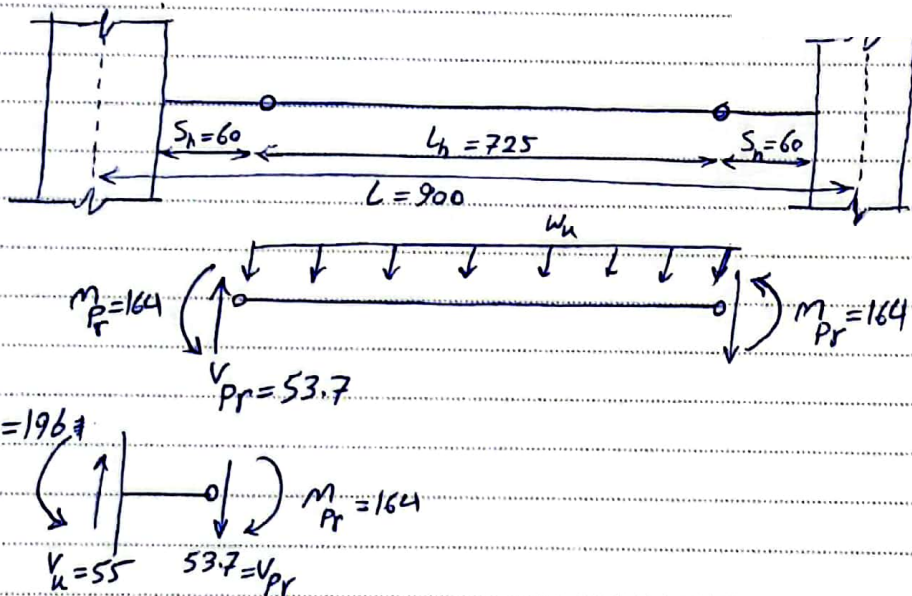 Sh=60 Lh=725 Sh=60
L=900
wu
Mpr=164 Mpr=164
Vpr=53.7
=196
Mpr=164
Vu=55 53.7=Vpr